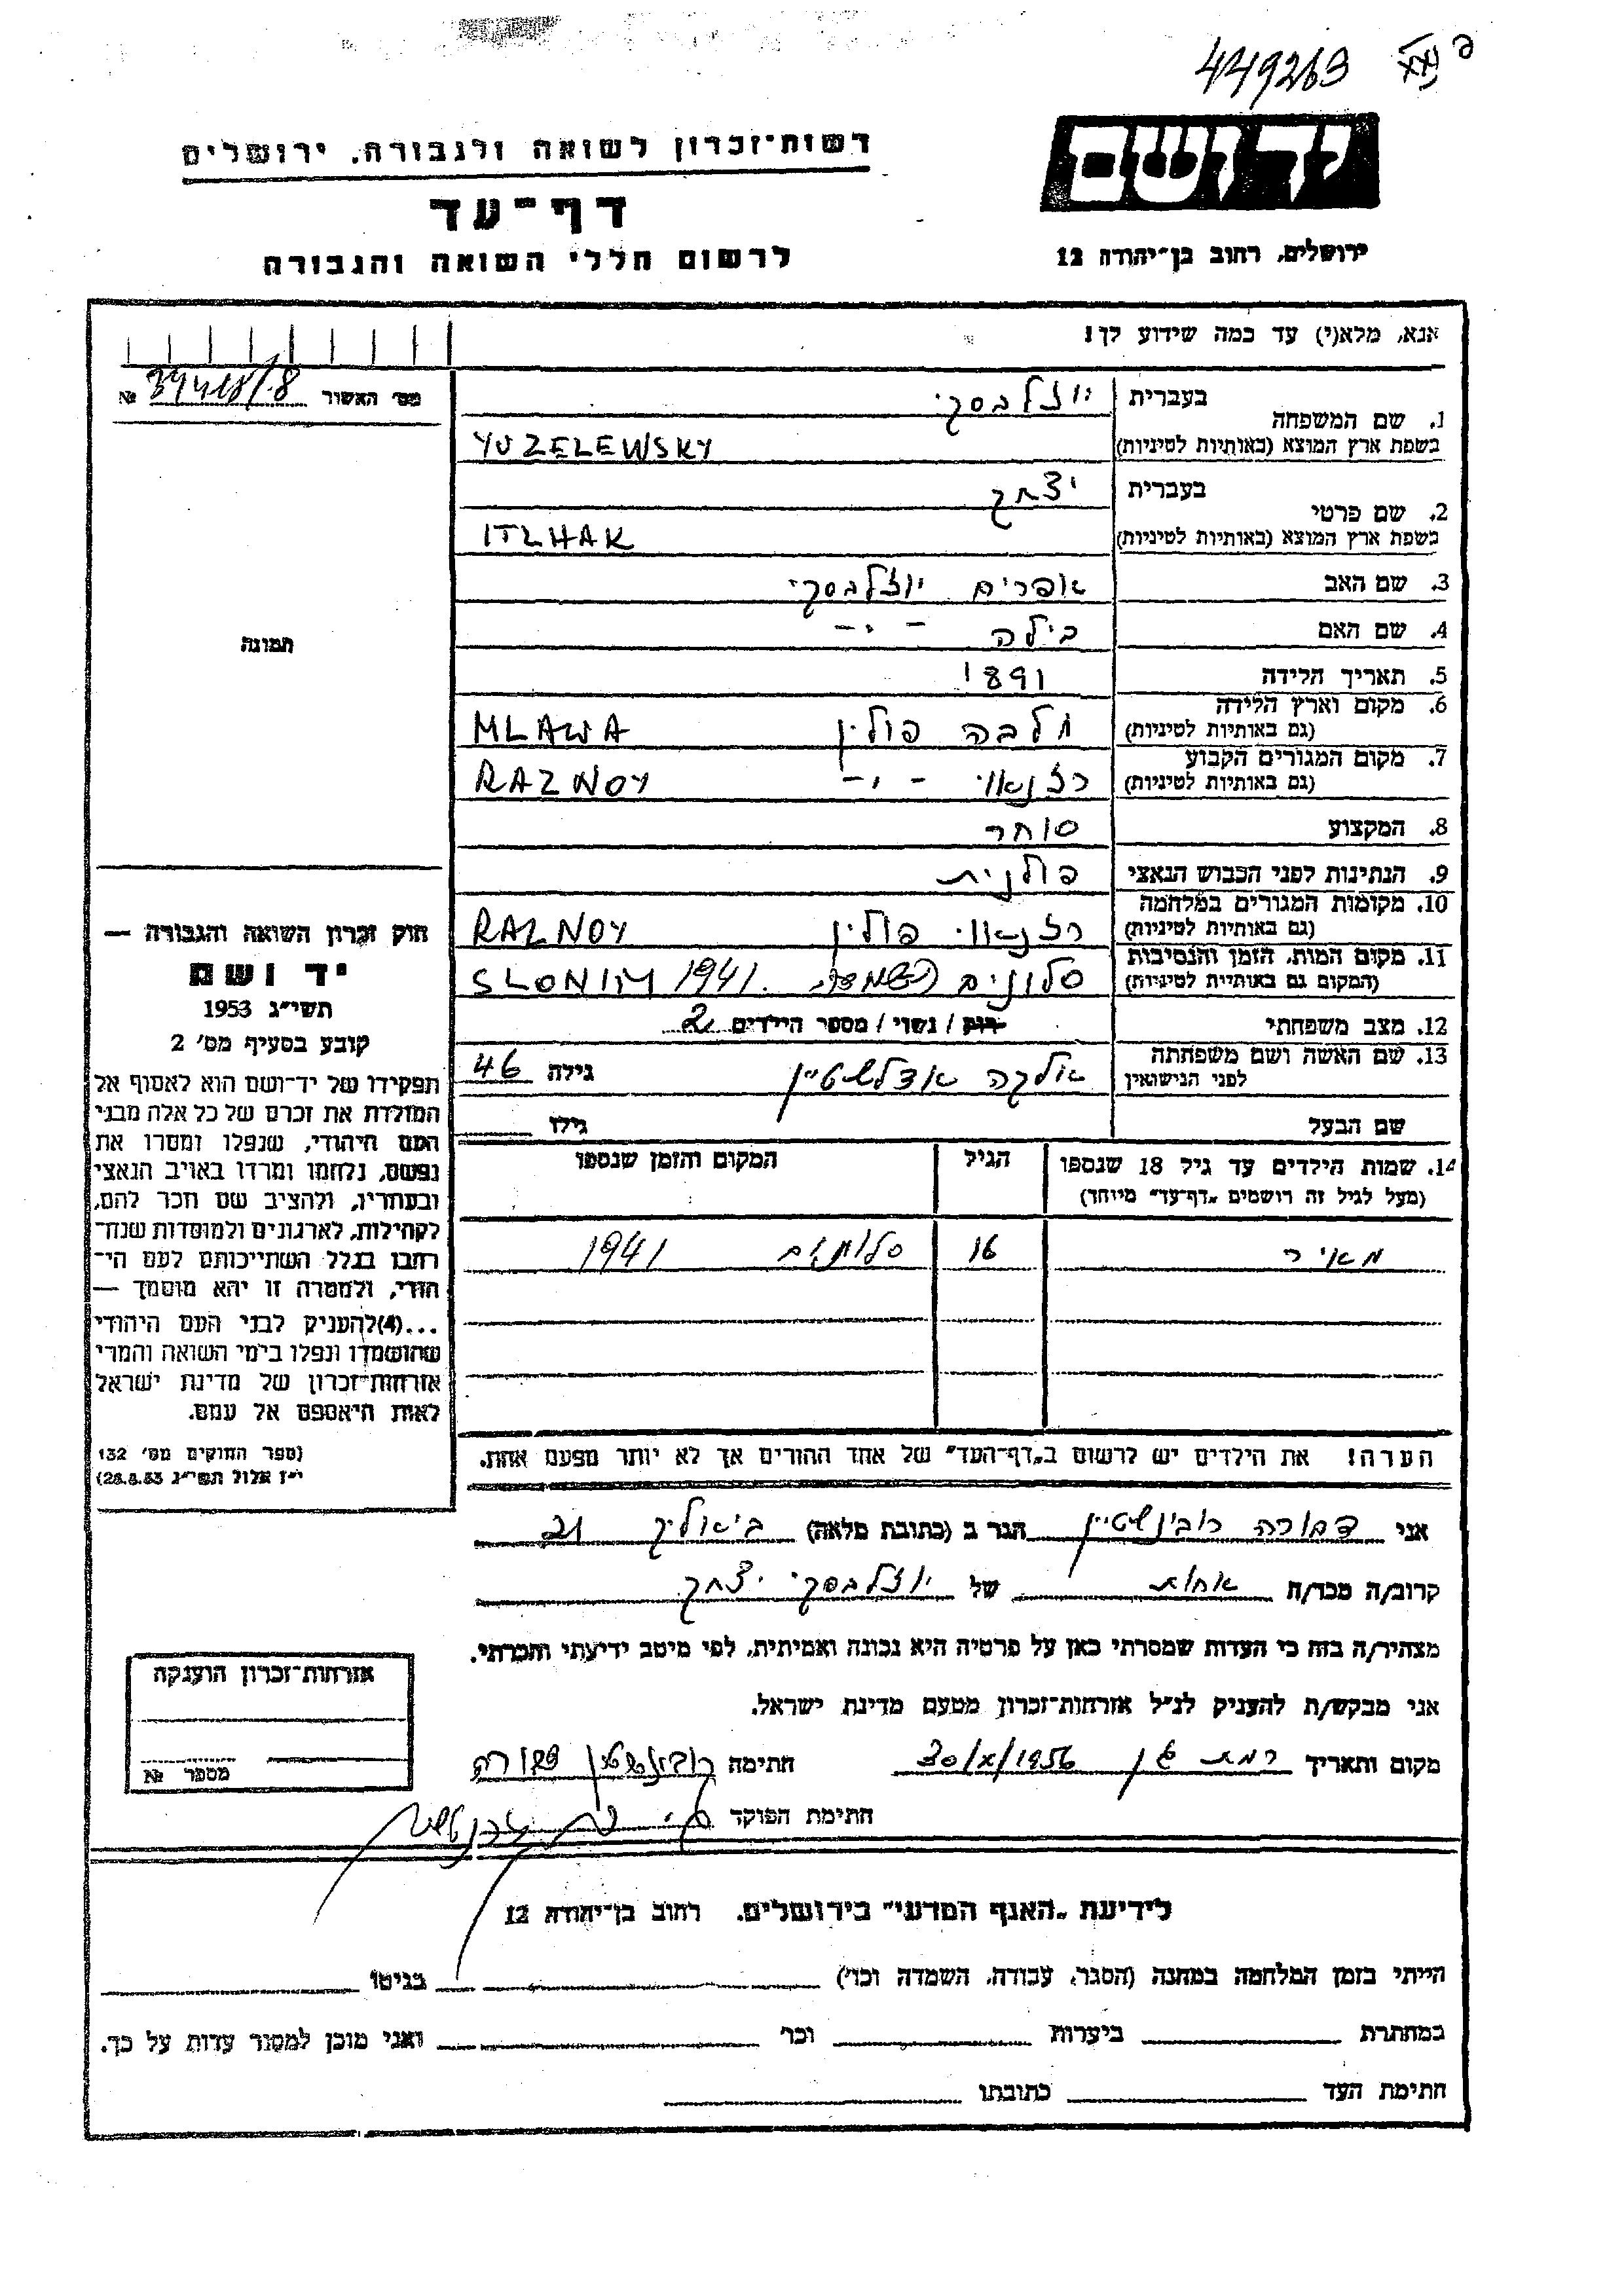 449263
יד ושם
רשות־זכרון לשואה ולגבורה, ירושלים
דף־עד
לרשום חללי השואה והגבורה
ירושלים, רחוב בן־יהודה 12
אנא, מלא(י) עד כמה שידוע לך!
מס׳ האשור № 34418/8
1. שם המשפחה בעברית יוזלבסקי
בשפת ארץ המוצא (באותיות לטיניות) YUZELEWSKY
2. שם פרטי בעברית יצחק
בשפת ארץ המוצא (באותיות לטיניות) ITZHAK
3. שם האב אפרים יוזלבסקי
4. שם האם בילה - " -
5. תאריך הלידה 1891
6. מקום וארץ הלידה (גם באותיות לטיניות) מלבה פולין MLAWA
7. מקום המגורים הקבוע (גם באותיות לטיניות) רזנאוי - " - RAZNOY
8. המקצוע סוחר
9. הנתינות לפני הכבוש הנאצי פולנית
10. מקומות המגורים במלחמה (גם באותיות לטיניות) רזנאוי פולין RAZNOY
11. מקום המות, הזמן והנסיבות (המקום גם באותיות לטיניות) סלונים 1941 SLONIM
12. מצב משפחתי רווק / נשוי / מספר הילדים 2
13. שם האשה ושם משפחתה לפני הנישואין אלקה אדלשטיין גילה 46
שם הבעל גילו
14. שמות הילדים עד גיל 18 שנספו (מעל לגיל זה רושמים „דף־עד" מיוחד) הגיל המקום והזמן שנספו
מאיר 16 סלונים 1941
תמונה
חוק זכרון השואה והגבורה —
יד ושם
תשי״ג 1953
קובע בסעיף מס׳ 2
תפקידו של יד־ושם הוא לאסוף אל
המולדת את זכרם של כל אלה מבני
העם היהודי, שנפלו ומסרו את
נפשם, נלחמו ומרדו באויב הנאצי
ובעוזריו, ולהציב שם וזכר להם,
לקהילות, לארגונים ולמוסדות שנח־
רבו בגלל השתייכותם לעם הי־
הודי, ולמטרה זו יהא מוסמך —
...(4) להעניק לבני העם היהודי
שהושמדו ונפלו בימי השואה והמרי
אזרחות־זכרון של מדינת ישראל
לאות היאספם אל עמם.
(ספר החוקים מס׳ 132
י״ז אלול תשי״ג 28.8.53)
הערה! את הילדים יש לרשום ב„דף־העד" של אחד ההורים אך לא יותר מפעם אחת.
אני דבורה רובינשטיין הגר ב (כתובת מלאה) ביאליק 21
קרוב/ה מכר/ה אחות של יוזלבסקי יצחק
מצהיר/ה בזה כי העדות שמסרתי כאן על פרטיה היא נכונה ואמיתית, לפי מיטב ידיעתי והכרתי.
אני מבקש/ת להעניק לנ״ל אזרחות־זכרון מטעם מדינת ישראל.
מקום ותאריך רמת גן 30/X/1956 חתימה רובינשטיין דבורה
חתימת הפוקד
אזרחות־זכרון הוענקה
מספר №
לידיעת „האגף המדעי" בירושלים, רחוב בן־יהודה 12
הייתי בזמן המלחמה במחנה (הסגר, עבודה, השמדה וכו׳) בגיטו
במחתרת ביערות וכו׳ ואני מוכן למסור עדות על כך.
חתימת העד כתובתו